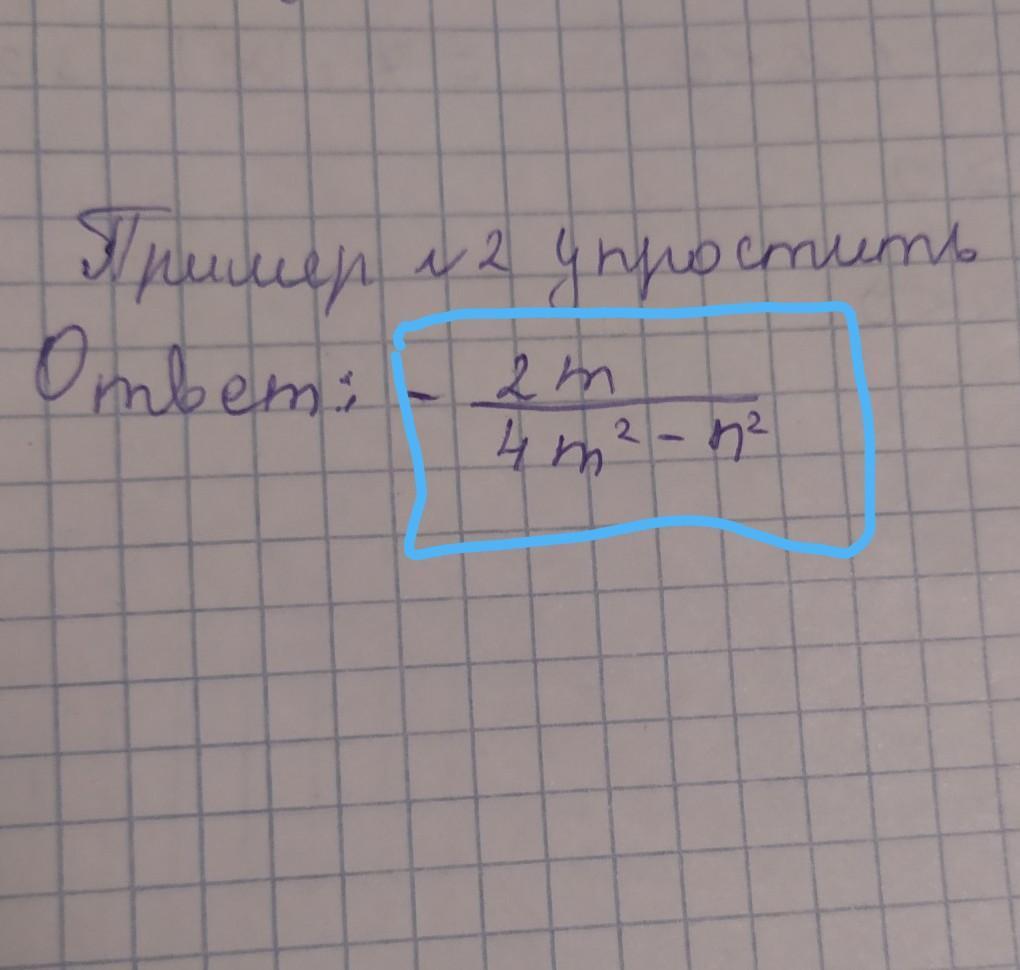 Пример №2 упростить
Ответ: - 2m
4m² - n²